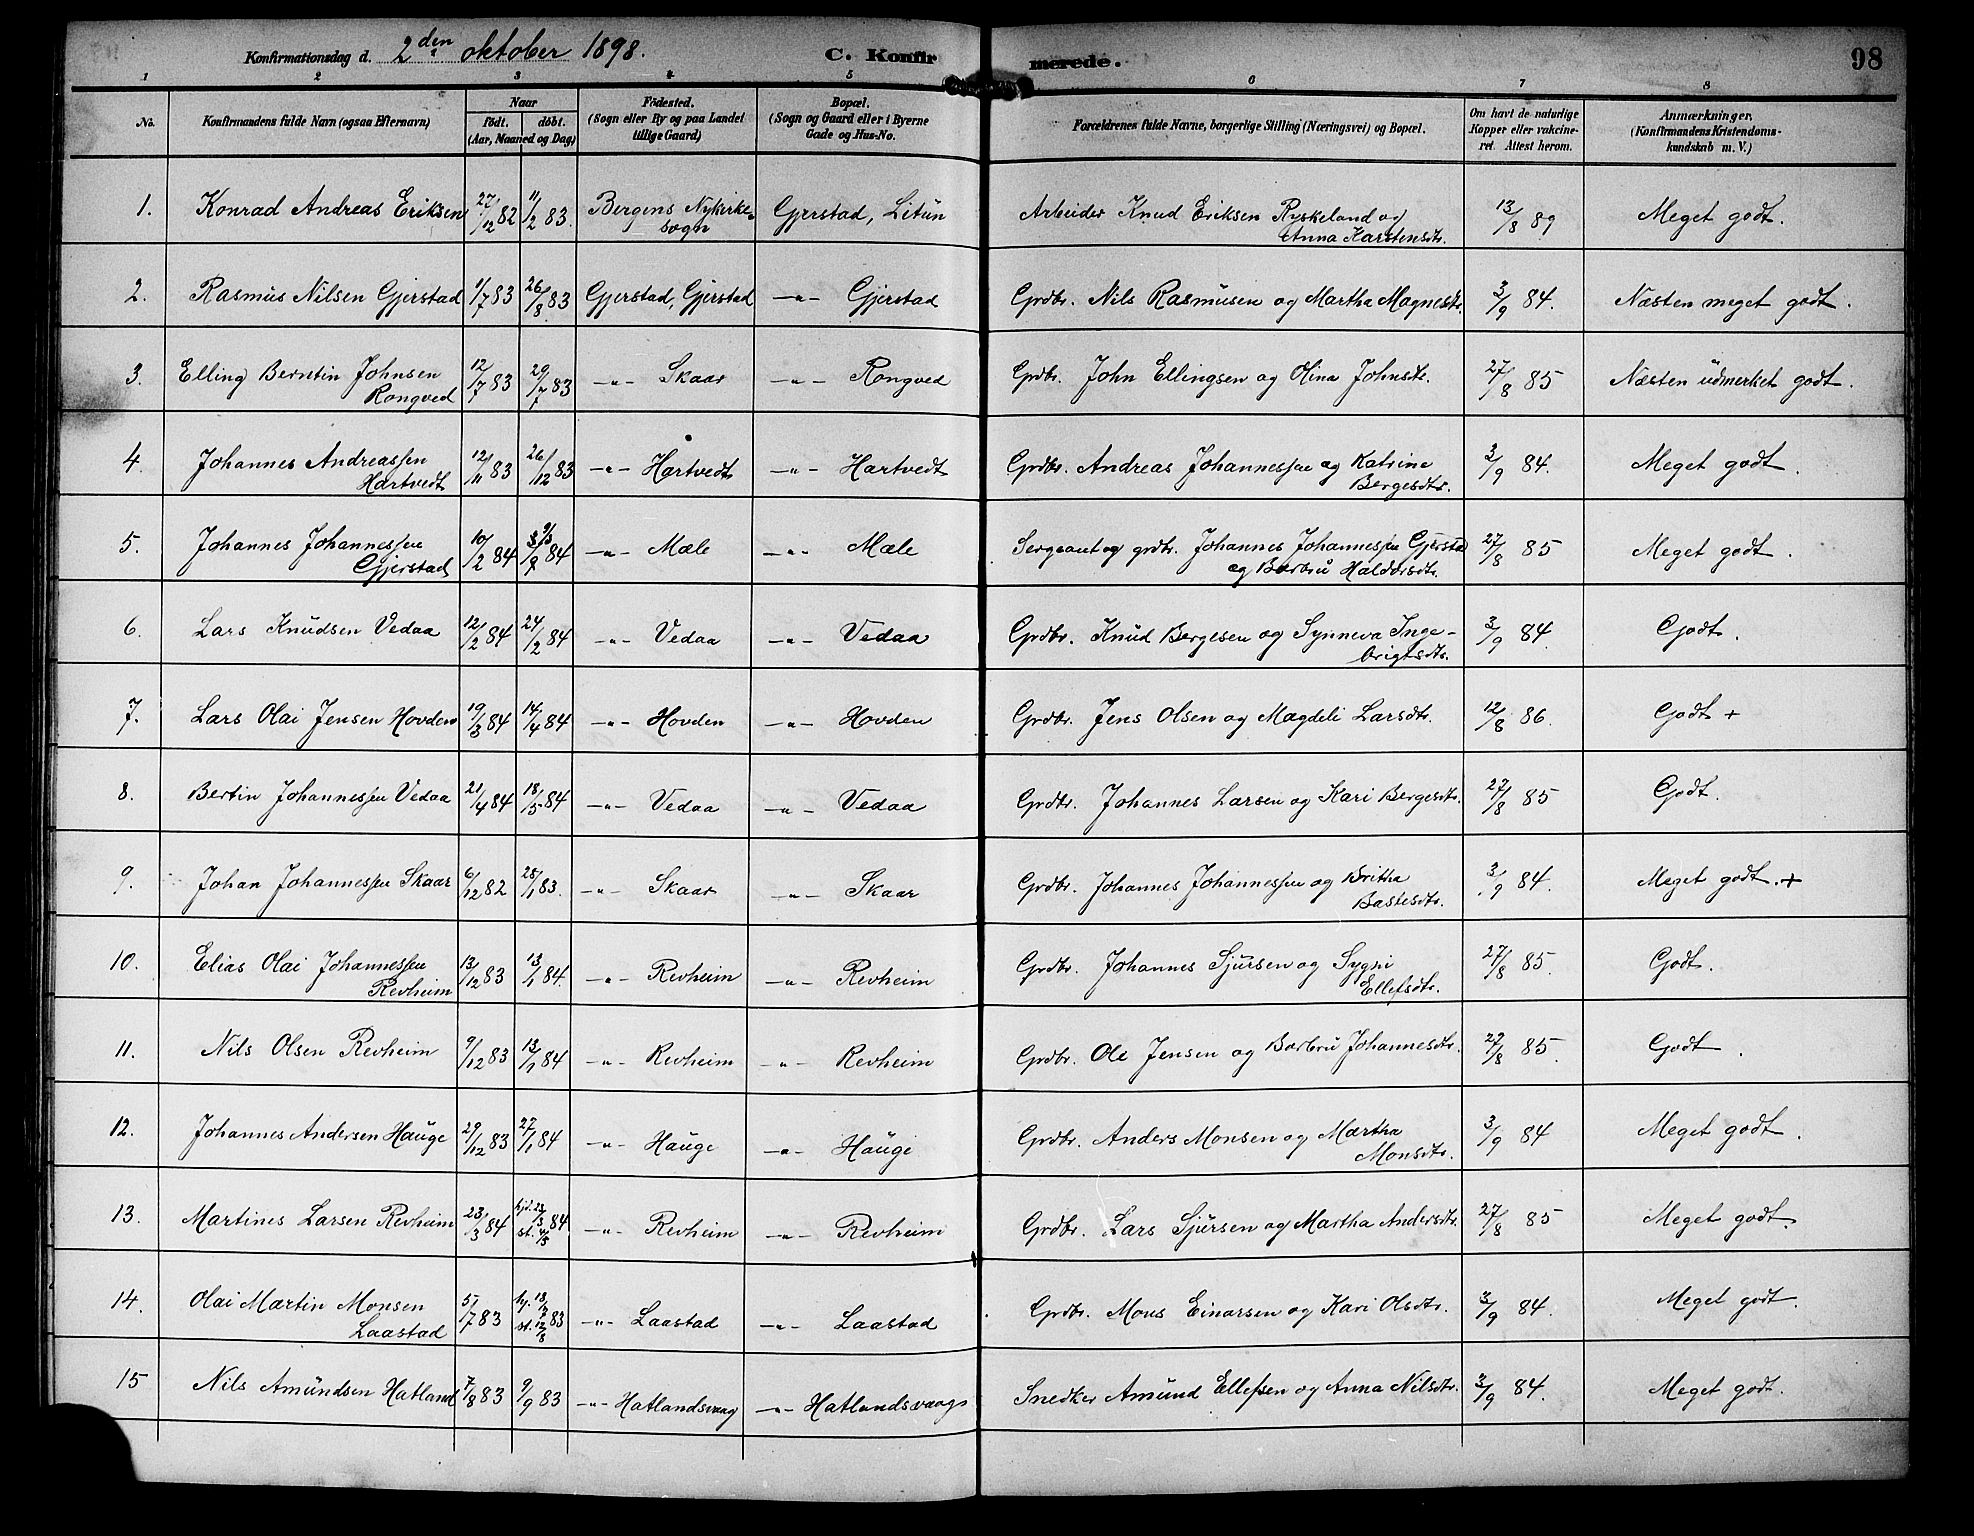 Konfirmationsdag d. 2den oktober 1898. C. Konfirmerede. 98
1 2 3 4 5 6 7 8
No. Konfirmandens fulde Navn (ogsaa Efternavn) Naar Födt. döbt. (Aar, Maaned og Dag) Födested. (Sogn eller By og paa Landet tillige Gaard) Bopæl. (Sogn og Gaard eller i Byerne Gade og Hus-No. Forældrenes fulde Navne, borgerlige Stilling (Næringsvei) og Bopæl. Om havt de naturlige Kopper eller vakcineret. Attest herom. Anmærkninger. (Konfirmandens Kristendomskundskab m. V.)
1. Konrad Andreas Eriksen 27/12 82 11/2 83. Bergens Nykirkesogn Gjerstad, Litün Arbeider Knud Eriksen Ryskeland og Anna Karstensdtr. 13/8 89 Meget godt.
2. Rasmus Nilsen Gjerstad 1/7 83 26/8 83 Gjerstad, Gjerstad -„- Gjerstad Grdbr. Nils Rasmusen og Martha Magnesdtr. 3/9 84. Næsten meget godt.
3. Elling Berntin Johnsen Rongved 12/7 83 29/7 83 -„- Skaar -„- Rongved Grdbr. John Ellingsen og Olina Johnsdtr. 27/8 85 Næsten üdmerket godt.
4. Johannes Andreassen Hartvedt 12/11 83 26/12 83 -„- Hartvedt -„- Hartvedt Grdbr. Andreas Johannessen og Katrine Bergesdtr. 3/9 84. Meget godt.
5. Johannes Johannessen Gjerstad 10/2 84 84 -„- Mæle -„- Mæle Sergeant og grdbr. Johannes Johannessen Gjerstad og Barbrü Haldorsdtr. 27/8 85 Meget godt.
6. Lars Knüdsen Vedaa 12/2 84 24/2 84 -„- Vedaa -„- Vedaa Grdbr. Knüd Bergesen og Synneva Ingebrigtsdtr. 3/9 84. Godt.
7. Lars Olai Jensen Hovden 19/3 84 14/4 84 -„- Hovden -„- Hovden Grdbr. Jens Olsen og Magdeli Larsdtr. 12/8 86. Godt +
8. Bertin Johannessen Vedaa 21/4 84 18/5 84 -„- Vedaa -„- Vedaa Grdbr. Johannes Larsen og Kari Bergesdtr. 27/8 85 Godt.
9. Johan Johannessen Skaar 6/12 82 28/1 83. -„- Skaar -„- Skaar Grdbr. Johannes Johannessen og Britha Bastesdtr. 3/9 84. Meget godt. +
10. Elias Olai Johannessen Revheim 13/12 83 13/1 84. -„- Revheim -„- Revheim Grdbr. Johannes Sjürsen og Sygni Ellefsdtr. 27/8 85. Godt.
11. Nils Olsen Revheim 9/12 83 13/1 84 -„- Revheim -„- Revheim Grdbr. Ole Jensen og Barbrü Johannesdtr. 27/8 85. Godt.
12. Johannes Andersen Haüge 29/12 83 27/1 84 -„- Haüge -„- Haüge Grdbr. Anders Monsen og Martha Monsdtr. 3/9 84 Meget godt.
13. Martines Larsen Revheim 23/3 84 hjd. 23/3 st. 4/5 84 -„- Revheim -„- Revheim Grdbr. Lars Sjürsen og Martha Andersdtr. 27/8 85 Meget godt.
14. Olai Martin Monsen Laastad 5/7 83 hj. 18/7 st. 12/8 83 -„- Laastad -„- Laastad Grdbr. Mons Einarsen og Kari Olsdtr. 3/9 84. Meget godt.
15 Nils Amündsen Hatland 7/8 83 9/9 83 -„- Hatlandsvaag -„- Hatlandsvaag Snedker Amünd Ellefsen og Anna Nilsdtr. 3/9 84. Meget godt.